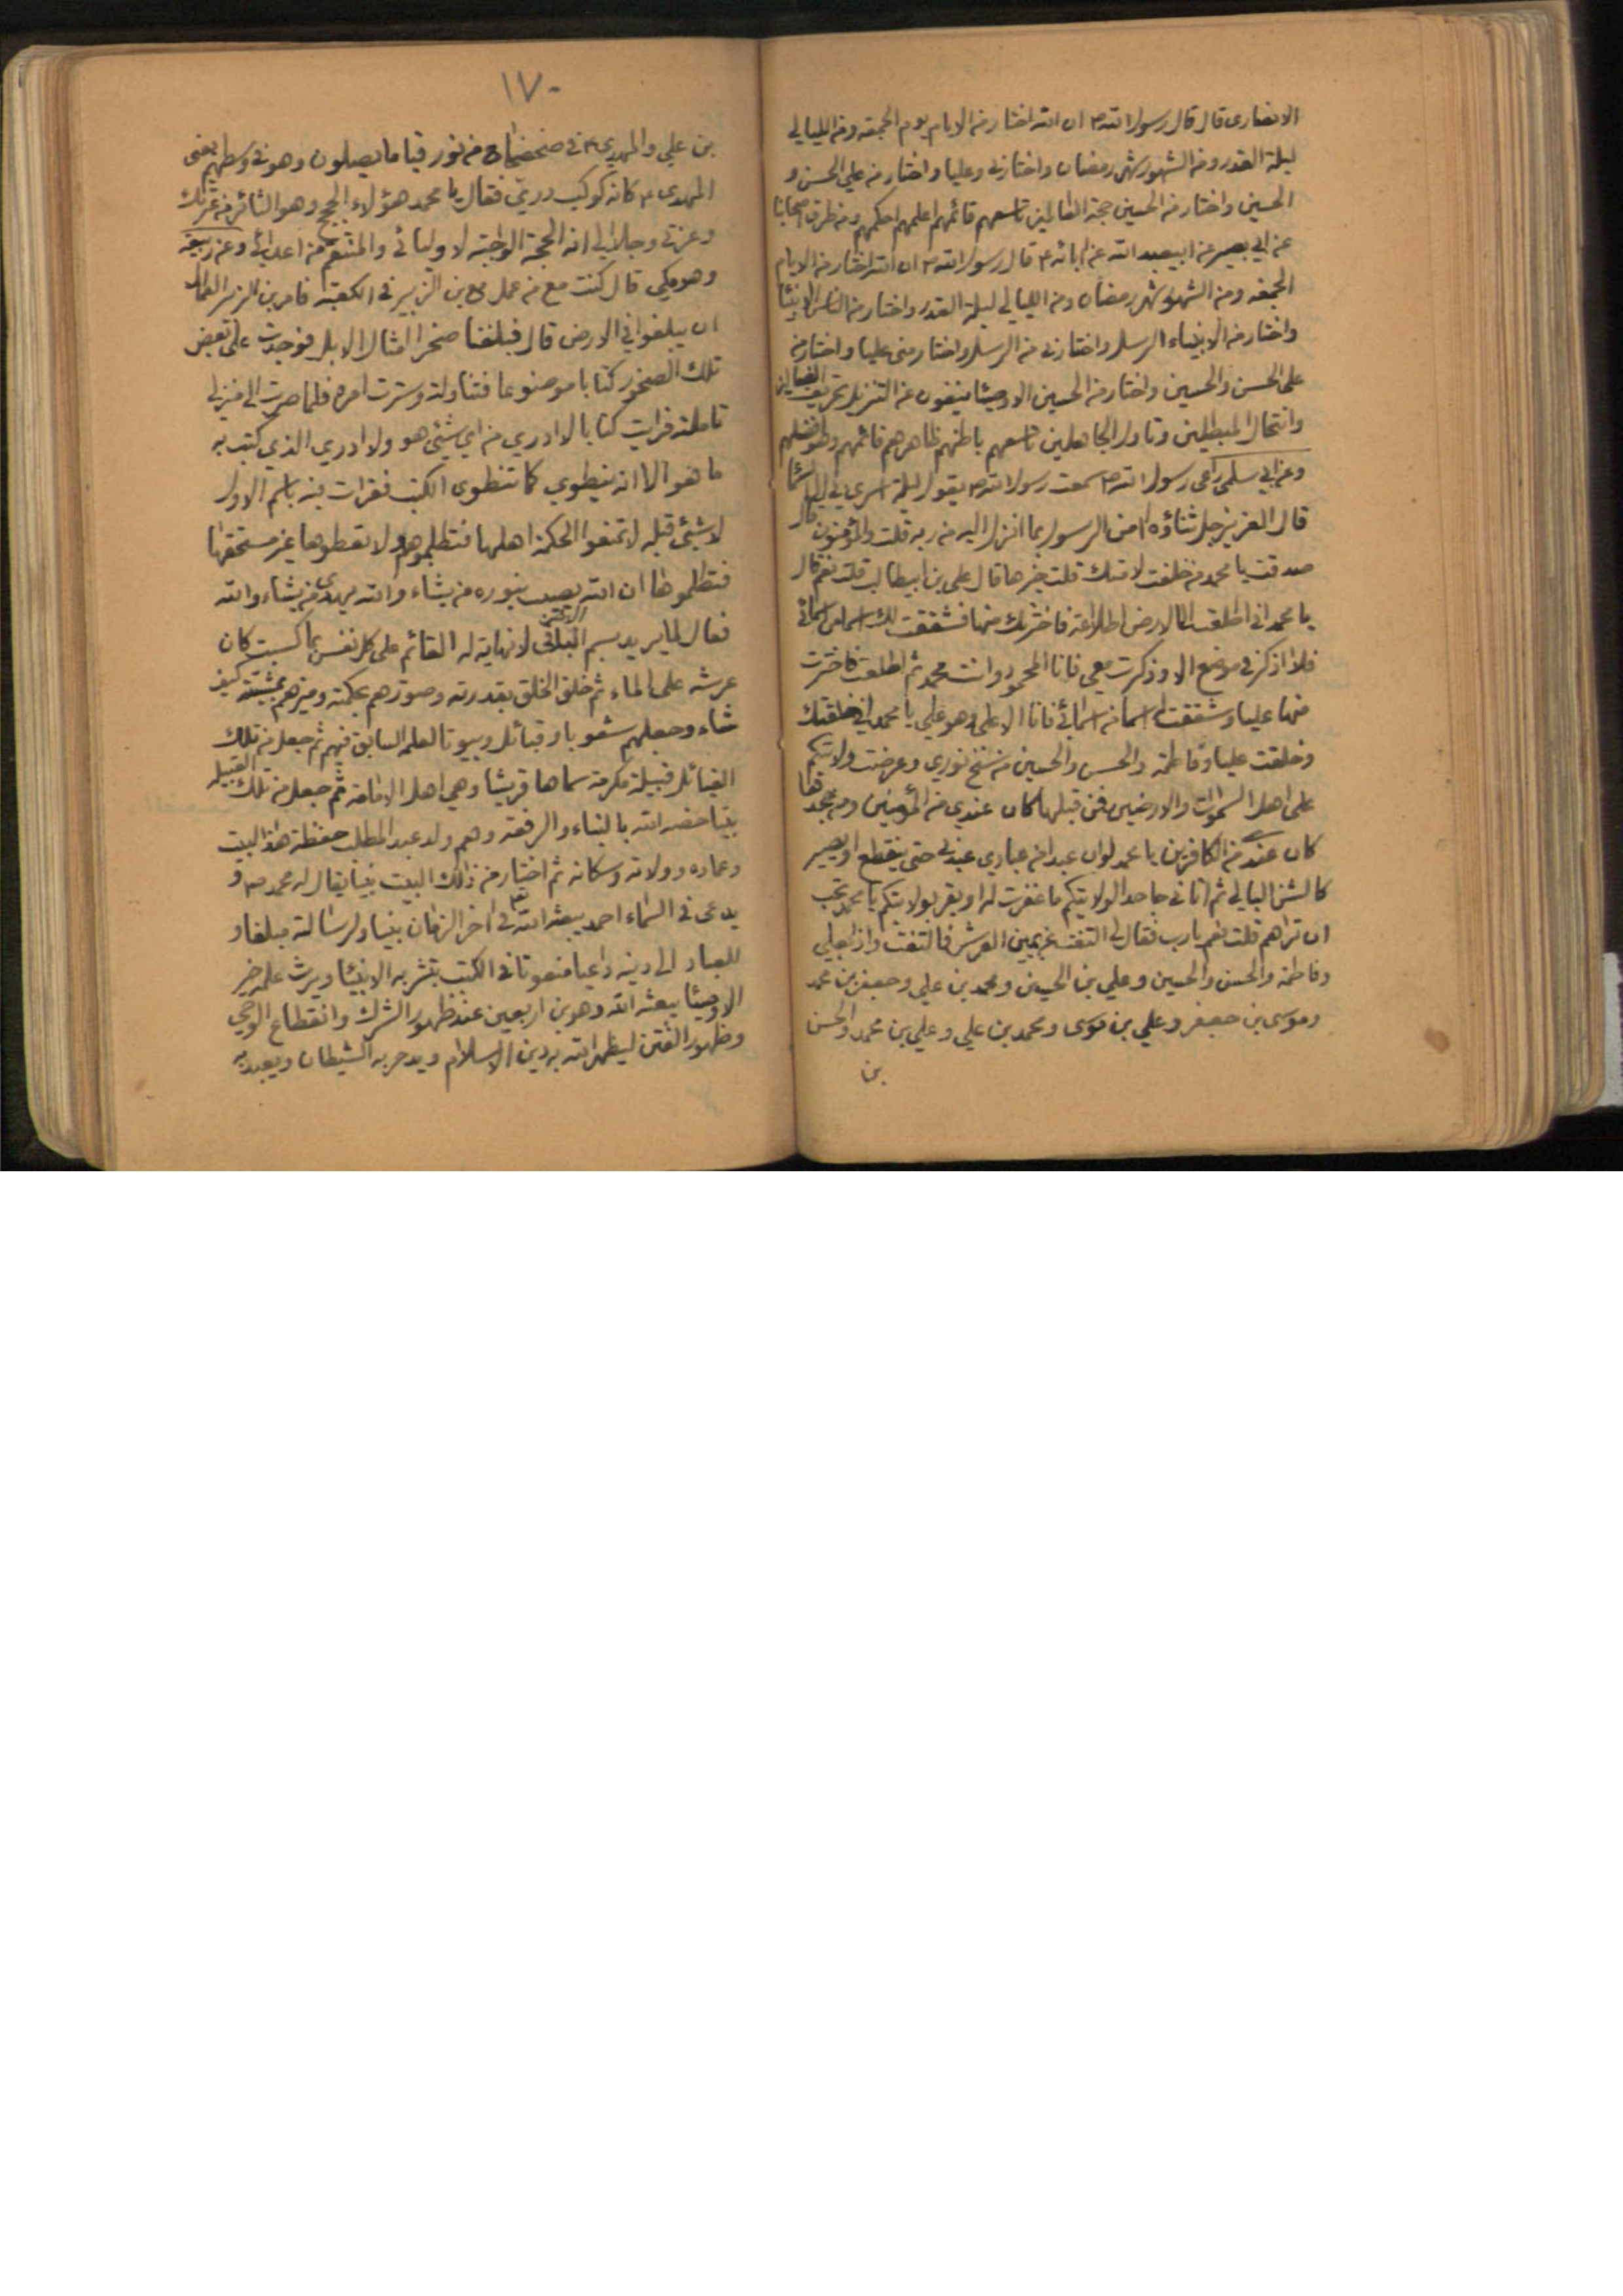 الانصاری قال قال رسول الله ص ان الله اختار من الایام یوم الجمعه ومن اللیالی
لیلة القدر ومن الشهور شهر رمضان واختارنی وعلیا واختار من علی الحسن و
الحسین واختار من الحسین حجة العالمین تاسعهم قائمهم اعلمهم احکمهم ومن طرق اصحابنا
عن ابی بصیر عن ابیعبد الله عن ابائه ع قال رسول الله ص ان الله اختار من الایام
الجمعه ومن الشهور شهر رمضان ومن اللیالی لیلة القدر واختار من الناس الانبیا
واختار من الانبیاء الرسل واختارنی من الرسل واختار منی علیا واختار من
علی الحسن والحسین واختار من الحسین الاوصیا ینفون عن التنزیل تحریف الضالین
وانتحال المبطلین وتاول الجاهلین تاسعهم باطنهم ظاهرهم قائمهم وهو افضلهم
وعن ابی سلمی راعی رسول الله ص سمعت رسول الله ص یقول لیلة اسری بی الی السما
قال العزیز جل ثناؤه امن الرسول بما انزل الیه من ربه قلت والمؤمنون قال
صدقت یا محمد من خلفت لامتک قلت خیرها قال علی بن ابیطالب قلت نعم قال
یا محمد انی اطلعت الی الارض اطلاعة فاخترتک منها فشققت لک اسما من اسمائی
فلا اذکر فی موضع الا وذکرت معی فانا المحمود وانت محمد ثم اطلعت فاخترت
منها علیا وشققت له اسما من اسمائی فانا الاعلی وهو علی یا محمد انی خلقتک
وخلقت علیا وفاطمة والحسن والحسین من سنخ نوری وعرضت ولایتکم
علی اهل السموات والارضین فمن قبلها کان عندی من المؤمنین ومن جحدها
کان عندی من الکافرین یا محمد لو ان عبدا من عبادی عبدنی حتی ینقطع او یصیر
کالشن البالی ثم اتانی جاحدا لولایتکم ما غفرت له او یقر بولایتکم یا محمد تحب
ان تراهم قلت نعم یا رب فقال لی التفت عن یمین العرش فالتفت واذا بعلی
وفاطمة والحسن والحسین وعلی بن الحسین ومحمد بن علی وجعفر بن محمد
وموسی بن جعفر وعلی بن موسی ومحمد بن علی وعلی بن محمد والحسن
بن
۱۷۰
بن علی والمهدی ع فی ضحضاح من نور قیاما یصلون وهو فی وسطهم یعنی
المهدی ع کانه کوکب دری فقال یا محمد هؤلاء الحجج وهو الثائر من عترتک
وعزتی وجلالی انه الحجة الواجبة لاولیائی والمنتقم من اعدائی وعن ربیعه
وهو مکی قال کنت مع من عمل مع بن الزبیر فی الکعبة فامر بن الزبیر العمال
ان یبلغوا فی الارض قال فبلغنا صخرا امثال الابل فوجدت علی بعض
تلک الصخور کتابا موضوعا فتناولته وسترت امره فلما صرت الی منزلی
تاملته فرایت کتابا لا ادری من ای شیئ هو ولا ادری الذی کتب به
ما هو الا انه ینطوی کما تنطوی الکتب فقرات فیه باسم الاول
لا شیئ قبله لا تمنعوا الحکمة اهلها فتظلموهم ولا تعطوها غیر مستحقها
فتظلموها ان الله یصیب بنوره من یشاء والله یهدی من یشاء والله
فعال لما یرید بسم الباقی لا نهایة له القائم علی کل نفس بما کسبت کان
عرشه علی الماء ثم خلق الخلق بقدرته وصورهم بحکمته ومیزهم بمشیته کیف
شاء وجعلهم شعوبا وقبائل وبیوتا لعلمه السابق فیهم ثم جعل من تلک
القبائل قبیلة مکرمة سماها قریشا وهی اهل الامامة ثم جعل من تلک القبیله
بیتا خصه الله بالبناء والرفعه وهم ولد عبد المطلب حفظة هذا البیت
وعماده وولاته وسکانه ثم اختار من ذلک البیت نبیا یقال له محمد ص و
یدعی فی السماء احمد یبعثه الله فی اخر الزمان نبیا ولرسالته مبلغا و
للعباد الی دینه داعیا منعوتا فی الکتب تبشر به الانبیا ویرث علمه خیر
الاوصیا یبعثه الله وهو بن اربعین عند ظهور الشرک وانقطاع الوحی
وظهور الفتن لیظهر الله به دین الاسلام ویدحر به الشیطان ویعبد به